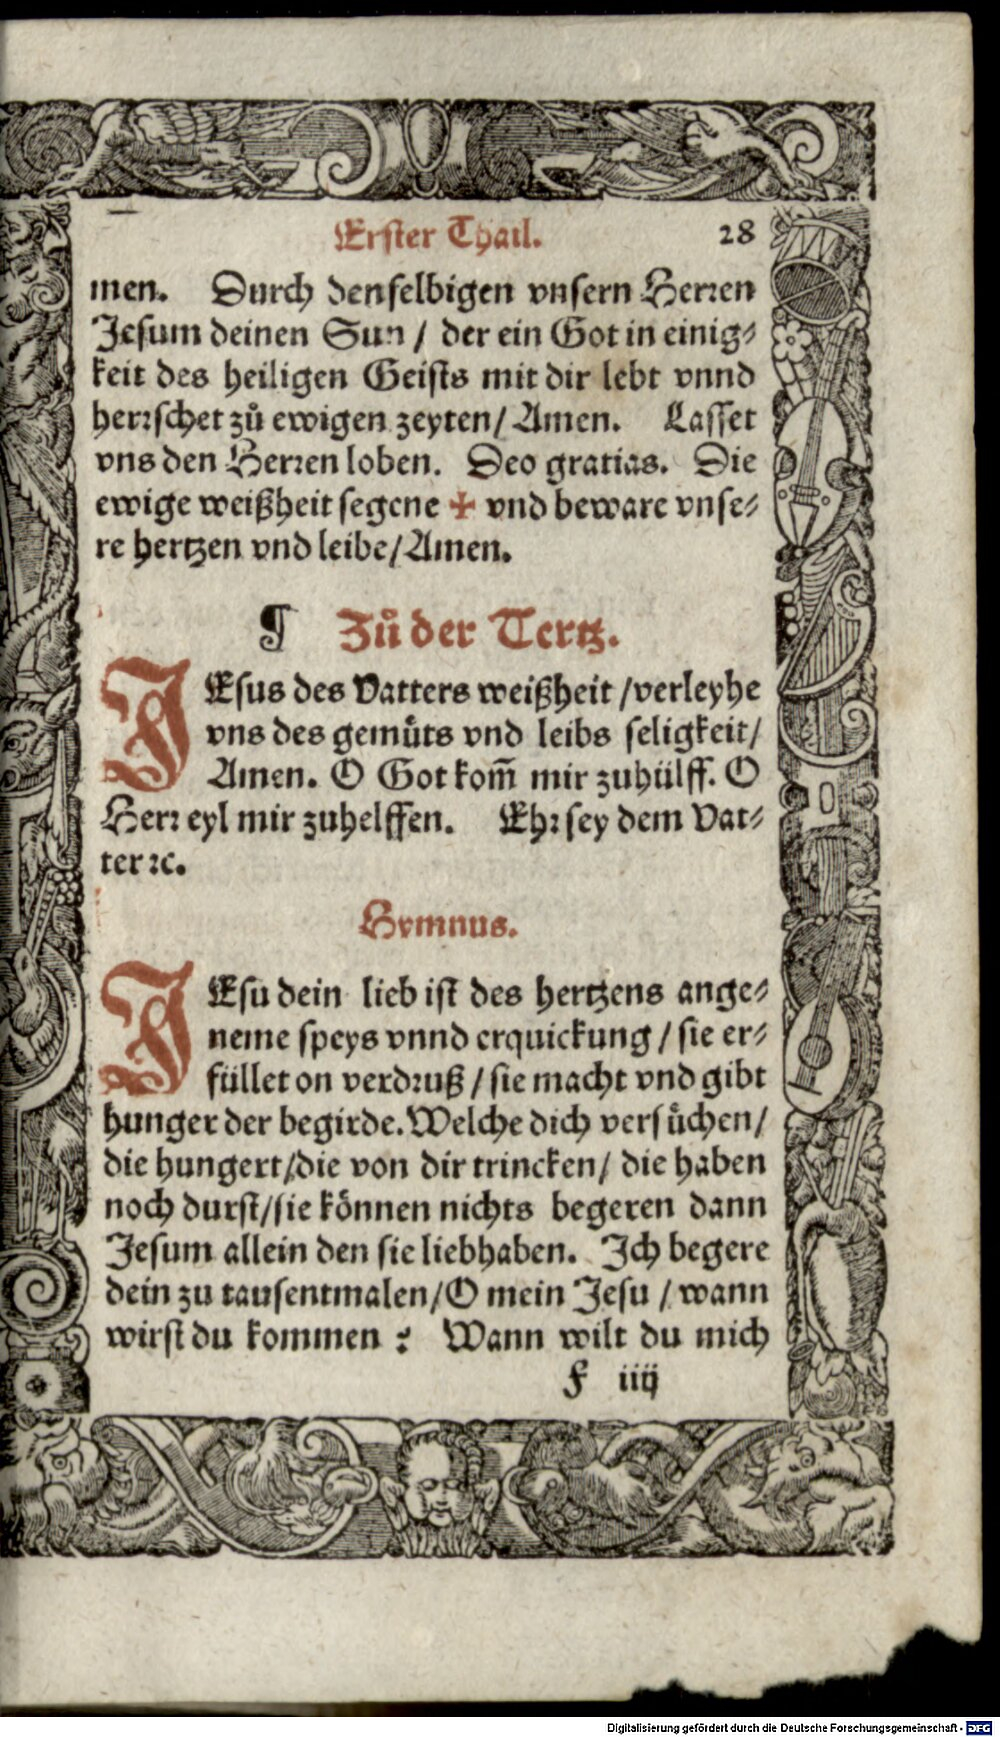 Erster Thail. 28
men. Durch denselbigen vnsern Herren
Jesum deinen Sun / der ein Got in einig⸗
keit des heiligen Geists mit dir lebt vnnd
herrschet zů ewigen zeyten / Amen. Lasset
vns den Herren loben. Deo gratias. Die
ewige weißheit segene ✠ vnd beware vnse⸗
re hertzen vnd leibe / Amen.
¶ Zů der Tertz.
JEsus des Vatters weißheit / verleyhe
vns des gemüts vnd leibs seligkeit /
Amen. O Got kom̃ mir zuhülff. O
Herr eyl mir zuhelffen. Ehr sey dem Vat⸗
ter ꝛc.
Hymnus.
JEsu dein lieb ist des hertzens ange⸗
neme speys vnnd erquickung / sie er⸗
füllet on verdruß / sie macht vnd gibt
hunger der begirde. Welche dich versůchen /
die hungert / die von dir trincken / die haben
noch durst / sie können nichts begeren dann
Jesum allein den sie liebhaben. Ich begere
dein zu tausentmalen / O mein Jesu / wann
wirst du kommen ? Wann wilt du mich
F iiij
Digitalisierung gefördert durch die Deutsche Forschungsgemeinschaft - DFG